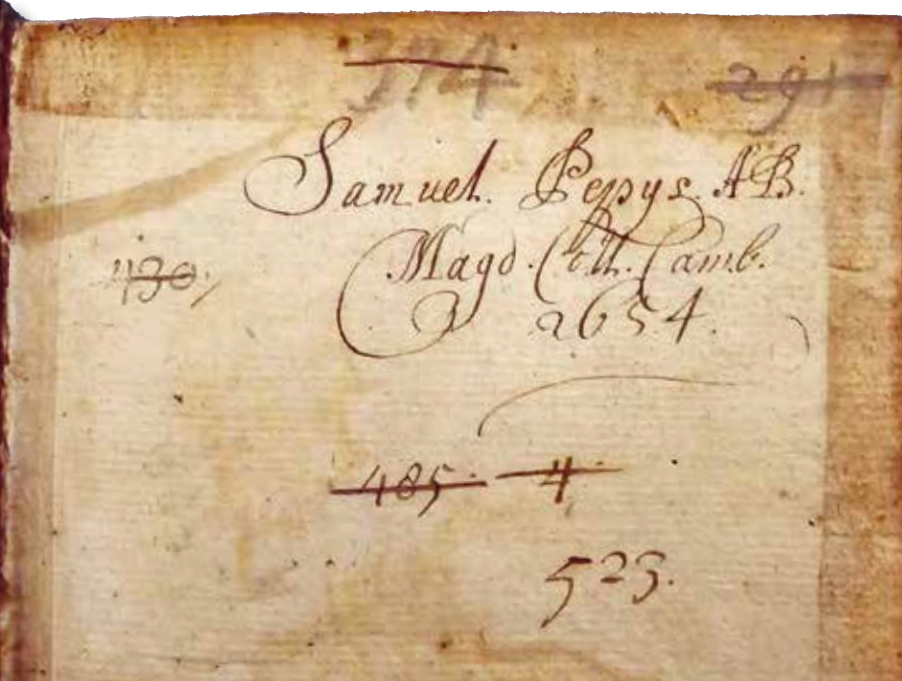 374 291
Samuel. Pepys. AB.
430. Magd. Coll. Camb.
2654.
485. 4.
523.